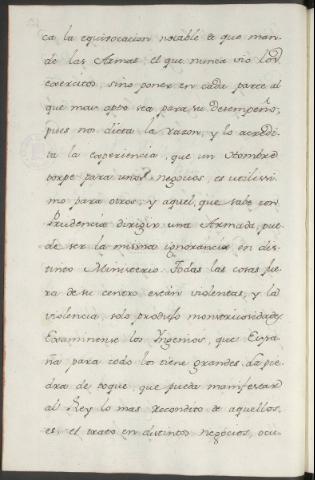 ca la equivocacion notable de que man-
de las Armas el que nunca vio los
exercitos, sino poner en cada parte al
que mas apto sea para su desempeño,
pues nos dicta la razon, y lo acredi-
ta la experiencia, que un Hombre
torpe para unos negocios, es utilissi-
mo para otros, y aquel, que sabe con
Prudencia dirigir una Armada, pue-
de ser la misma ignorancia en dis-
tinto Ministerio. Todas las cosas fue-
ra de su centro están violentas, y la
violencia solo produjo monstruosidades.
Examinense los Yngenios, que Espa-
ña para todo los tiene grandes. La pie-
dra de toque, que puede manifestar
al Rey lo mas recondito de aquellos,
es, el trato en distintos negocios, ocu-